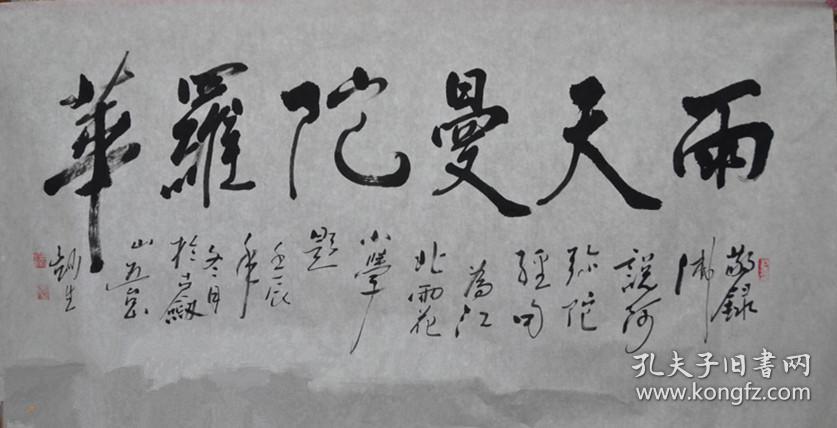 雨天曼陀羅華
敬録
佛
説阿
弥陀
經句
為江
北雨花
小學
題
壬辰
年
冬月
於古劔
山逸岛
妙生
孔夫子旧书网
www.kongfz.com